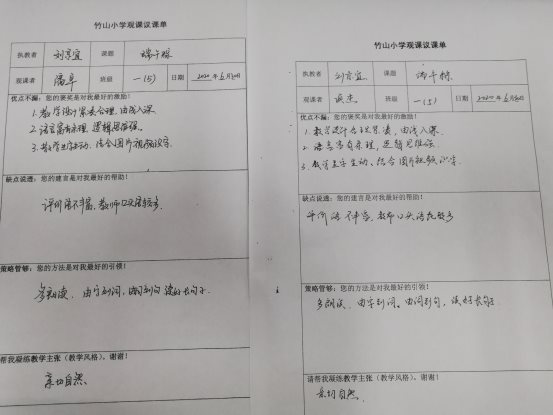 竹山小学观课议课单
执教者 刘享宜 课题 端午粽
观课者 潘卓 班级 一(5) 日期 2020年6月30日
优点不漏:您的褒奖是对我最好的激励!
1. 教学设计紧凑合理,由浅入深。
2. 语言富有条理,逻辑思维强。
3. 教学生字生动,结合图片视频识字。
缺点说透:您的建言是对我最好的帮助!
评价语不丰富,教师口头语较多。
策略管够:您的方法是对我最好的引领!
多朗读,由字到词,由词到句,读好长句子。
帮我凝练教学主张(教学风格),谢谢!
亲切自然。
竹山小学观课议课单
执教者 刘享宜 课题 端午粽
观课者 班级 一(5) 日期 2020年6月30日
优点不漏:您的褒奖是对我最好的激励!
1. 教学设计合理紧凑,由浅入深。
2. 语言富有条理,逻辑思维强。
3. 教学生字生动,结合图片视频识字。
缺点说透:您的建言是对我最好的帮助!
评价语不丰富,教师口头语较多
策略管够:您的方法是对我最好的引领!
多朗读,由字到词、由词到句,读好长句子。
请帮我凝练教学主张(教学风格),谢谢!
亲切自然。